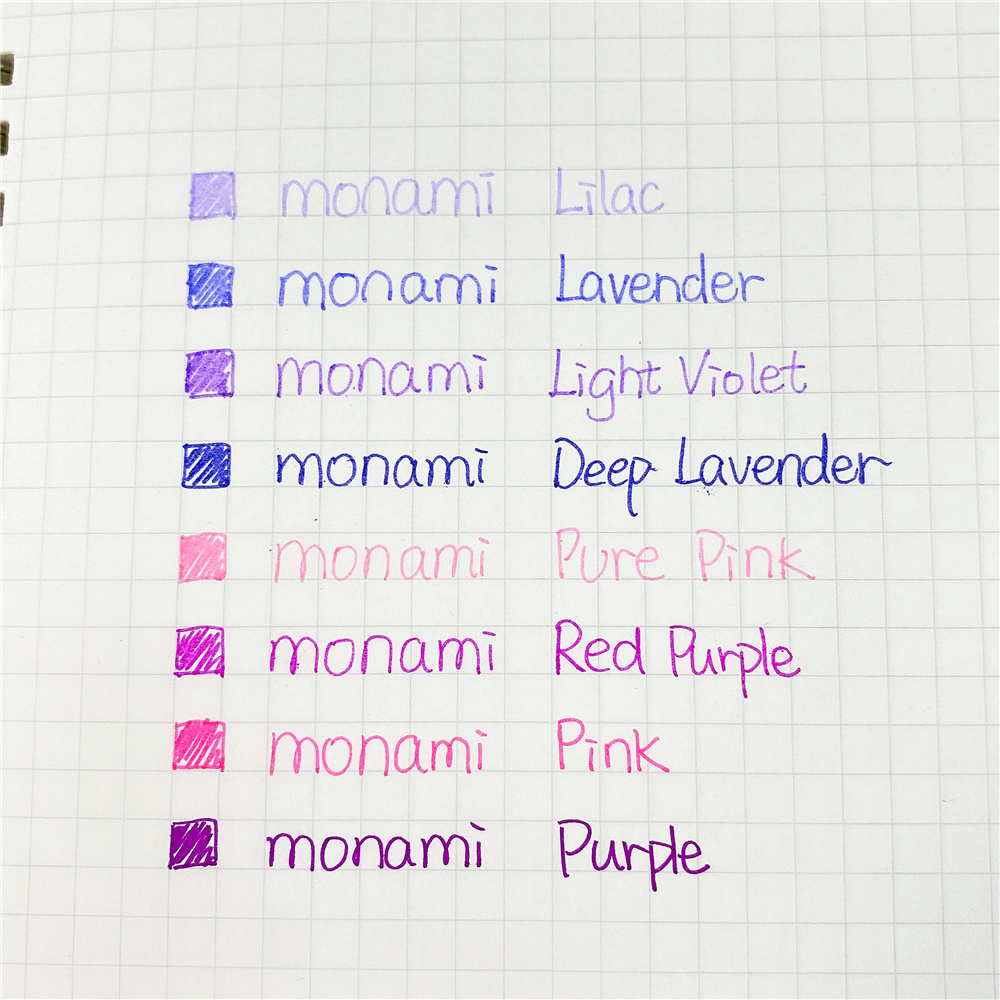 monami Lilac
monami Lavender
monami Light Violet
monami Deep Lavender
monami Pure Pink
monami Red Purple
monami Pink
monami Purple